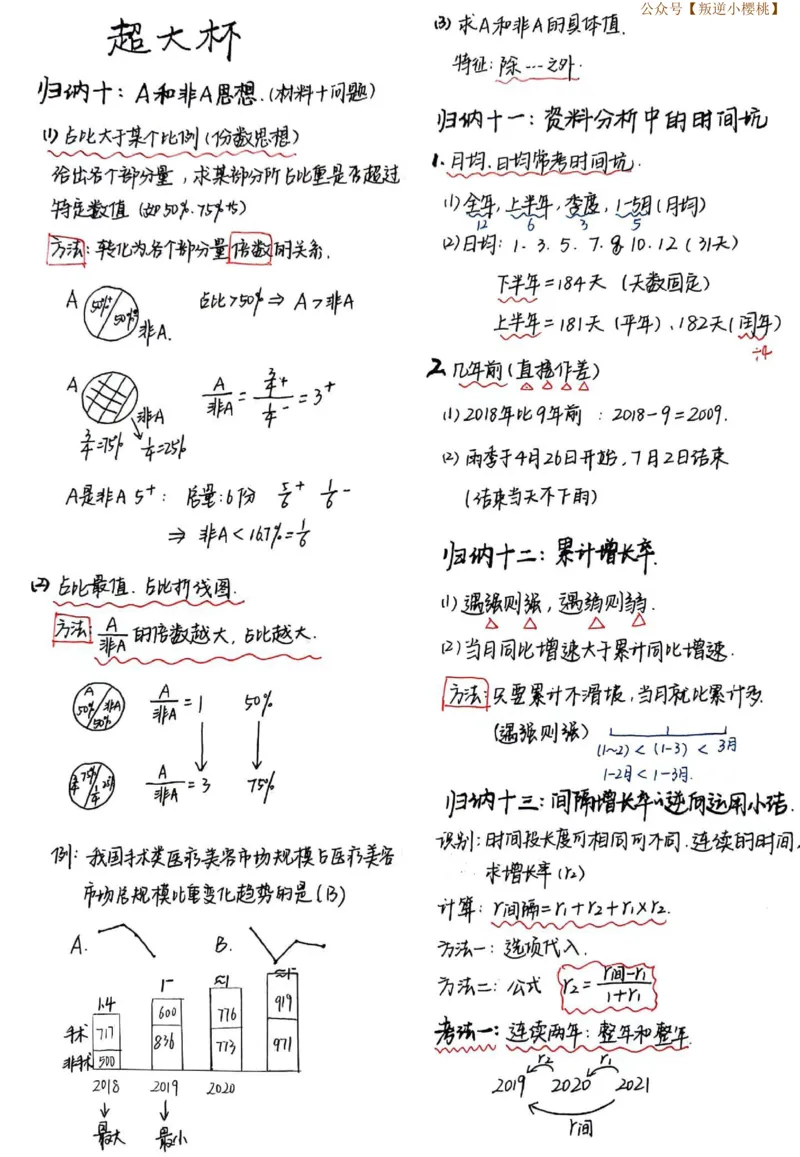 公众号【叛逆小樱桃】
超大杯
归纳十：A和非A思想.(材料+问题)
(1) 占比大于某个比例(份数思想)
给出各个部分量，求某部分所占比重是否超过
特定数值(如50%.75%等)
方法：转化为各个部分量倍数的关系.
A 50%+ 50%- 非A. 占比>50% ⇒ A>非A
A 非A A/非A = (3/4+)/(1/4-) = 3+
3/4=75% 1/4=25%
A是非A 5+： 总量:6份 5/6+ 1/6-
⇒ 非A<16.7%=1/6
(2) 占比最值.占比折线图.
方法：A/非A 的倍数越大，占比越大.
A 50% 非A 50% A/非A = 1 50%
3/4 75% 1/4 25% A/非A = 3 75%
例：我国手术类医疗美容市场规模占医疗美容
市场总规模比重变化趋势的是(B)
A. B.
1.4 1- ≈1 ≈1-
手术 717 600 776 919
非手术 500 836 773 971
2018 2019 2020
最大 最小
(3) 求A和非A的具体值.
特征：除…之外.
归纳十一：资料分析中的时间坑
1.月均.日均常考时间坑.
(1)全年,上半年,季度,1-5月(月均)
12 6 3 5
(2)日均：1.3.5.7.8.10.12(31天)
下半年=184天 (天数固定)
上半年=181天(平年)、182天(闰年)
÷4
2.几年前(直接作差)
(1)2018年比9年前：2018-9=2009.
(2)雨季于4月26日开始,7月2日结束
(结束当天不下雨)
归纳十二：累计增长率.
(1)遇强则强，遇弱则弱.
(2)当月同比增速大于累计同比增速.
方法：只要累计不滑坡,当月就比累计多.
(遇强则强)
(1~2) < (1-3) < 3月
1-2月<1-3月.
归纳十三：间隔增长率逆向运用小结.
识别：时间段长度可相同可不同.连续的时间,
求增长率(r2)
计算：r间隔=r1+r2+r1×r2.
方法一：选项代入.
方法二：公式 r2=(r间-r1)/(1+r1)
考法一：连续两年：整年和整年.
r2 r1
2019 2020 2021
r间